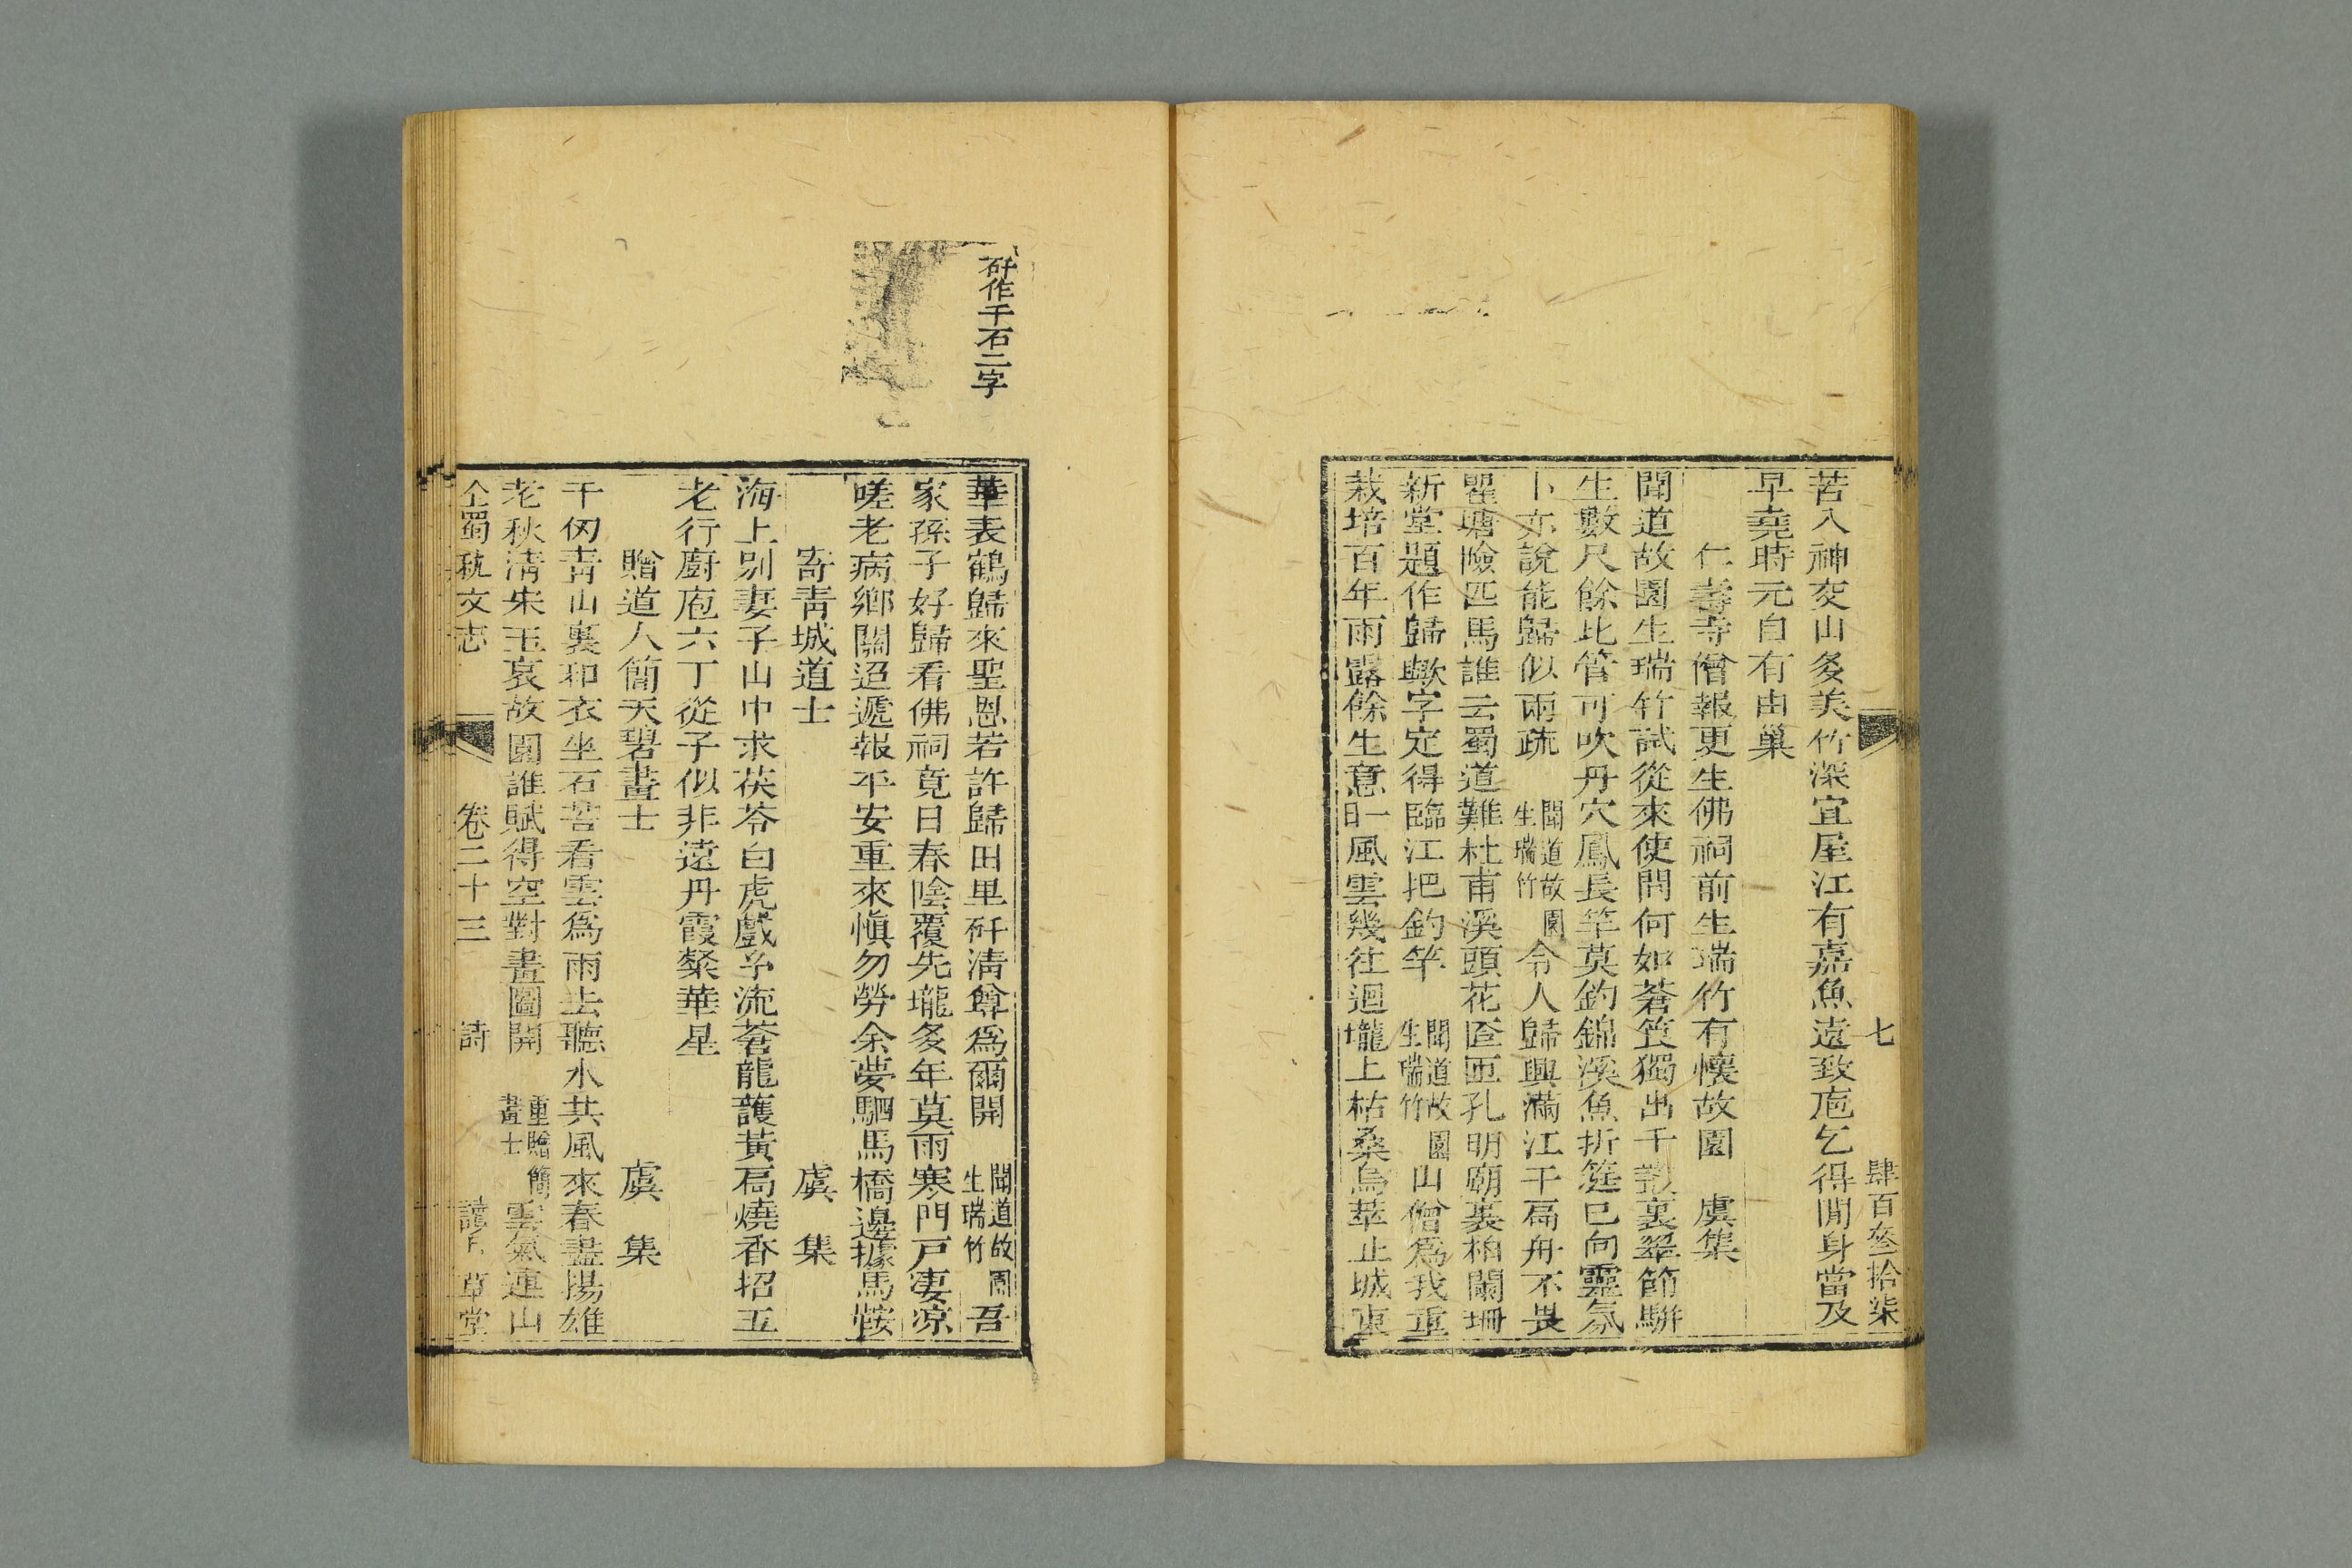 七　肆百叁拾柒
苦入神交山多美竹深宜屋江有嘉魚遠致庖乞得閒身當及
早堯時元自有由巢
仁壽寺僧報更生佛祠前生瑞竹有懷故園　虞集
聞道故園生瑞竹試從來使問何如蒼筤獨出千叢裏翠節駢
生數尺餘比管可吹丹穴鳳長竿莫釣錦溪魚折筳已向靈氛
卜亦說能歸似兩疏　聞道故園生瑞竹令人歸興滿江干扁舟不畏
瞿塘險匹馬誰云蜀道難杜甫溪頭花匼匝孔明廟裏柏闌珊
新堂題作歸歟字定得臨江把釣竿　聞道故園生瑞竹山僧爲我重
栽培百年雨露餘生意一日風雲幾往迴壠上枯桑烏萃止城東
華表鶴歸來聖恩若許歸田里矸清尊爲爾開　聞道故園生瑞竹吾
家孫子好歸看佛祠竟日春陰覆先壠多年莫雨寒門戸凄凉
嗟老病鄉關迢遞報平安重來愼勿勞余夢駟馬橋邊據馬鞍
寄靑城道士　虞　集
海上别妻子山中求茯苓白虎戲予流蒼龍護黃扃燒香招五
老行廚庖六丁從子似非遠丹霞粲華星
贈道人簡天碧畫士　虞　集
千仞靑山裏和衣坐石苔看雲爲雨去聽水共風來春盡揚雄
老秋淸宋玉哀故園誰賦得空對畫圖開　重贈簡畫士雲氣連山
全蜀秇文志　卷二十三　詩　讀月草堂
矸作千石二字